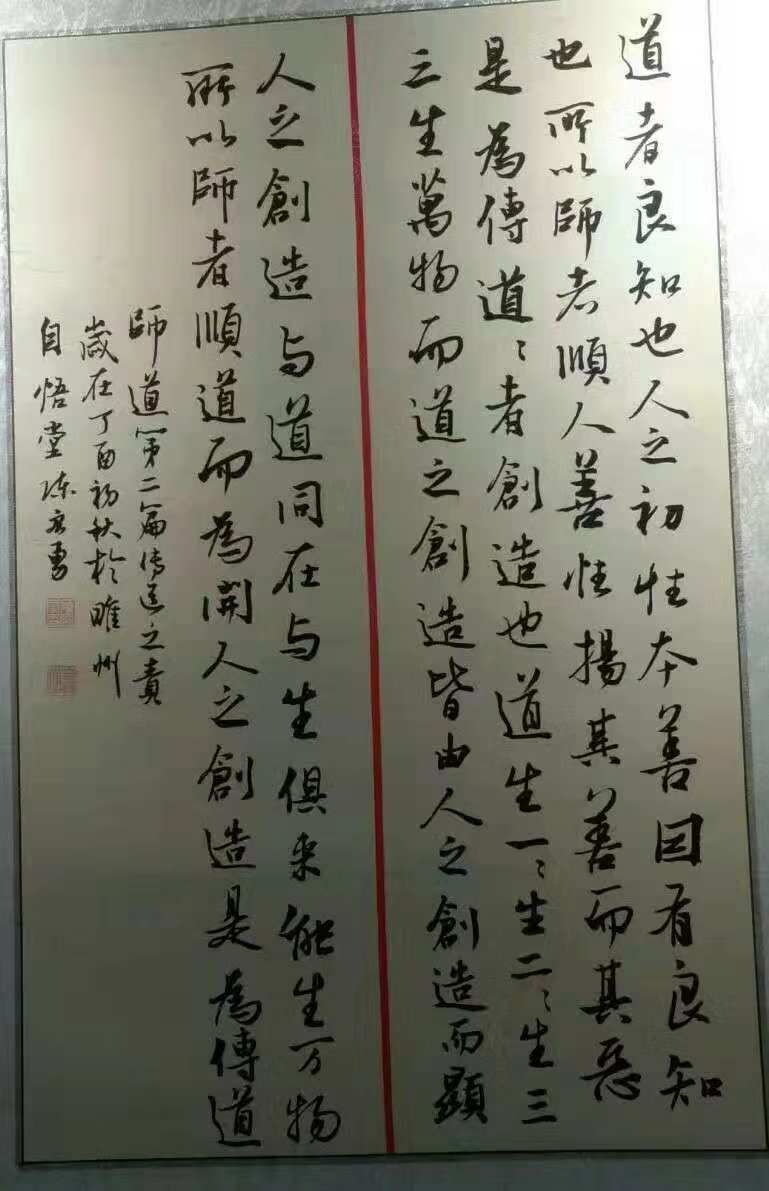 道者良知也人之初性本善因有良知
也所以師者順人善性揚其善而其惡
是為傳道〻者創造也道生一〻生二〻生三
三生萬物而道之創造皆由人之創造而顯
人之創造与道同在与生俱来能生万物
所以師者順道而為開人之創造是為傳道
師道第二篇传道之責
歲在丁酉初秋於睢州
自悟堂